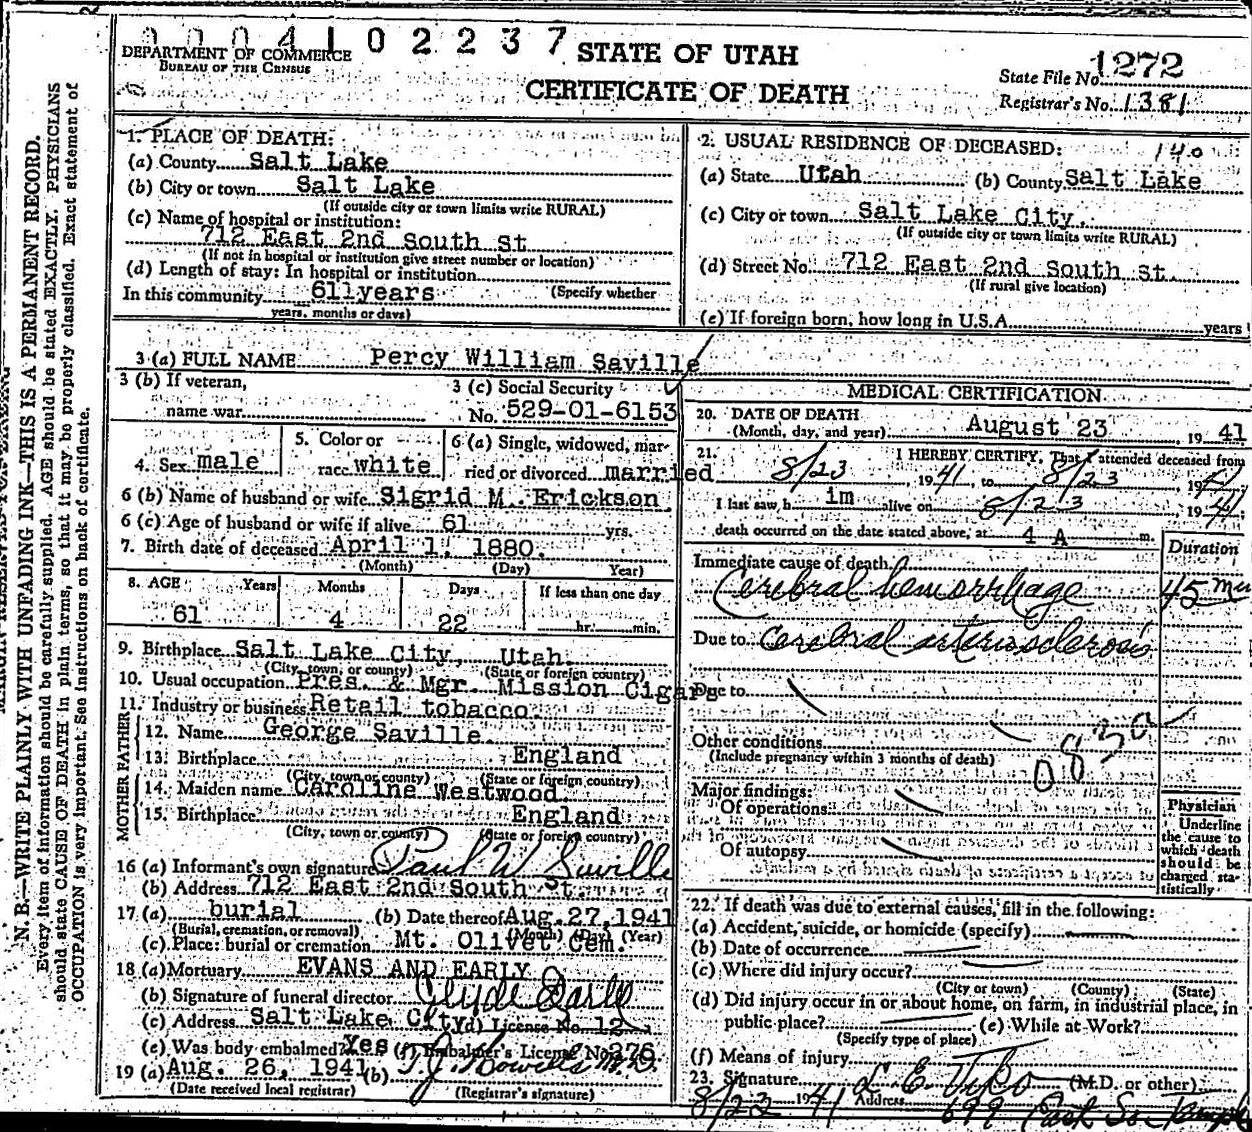 0004102237
DEPARTMENT OF COMMERCE
BUREAU OF THE CENSUS
STATE OF UTAH
CERTIFICATE OF DEATH
State File No. 1272
Registrar's No. 1381
N. B.—WRITE PLAINLY WITH UNFADING INK—THIS IS A PERMANENT RECORD.
Every item of information should be carefully supplied. AGE should be stated EXACTLY. PHYSICIANS
should state CAUSE OF DEATH in plain terms, so that it may be properly classified. Exact statement of
OCCUPATION is very important. See instructions on back of certificate.
1. PLACE OF DEATH:
(a) County Salt Lake
(b) City or town Salt Lake
(If outside city or town limits write RURAL)
(c) Name of hospital or institution:
712 East 2nd South St
(If not in hospital or institution give street number or location)
(d) Length of stay: In hospital or institution
In this community 61 years (Specify whether
years, months or days)
2. USUAL RESIDENCE OF DECEASED: 140
(a) State Utah (b) County Salt Lake
(c) City or town Salt Lake City.
(If outside city or town limits write RURAL)
(d) Street No. 712 East 2nd South St.
(If rural give location)
(e) If foreign born, how long in U.S.A. years
3 (a) FULL NAME Percy William Saville
3 (b) If veteran,
name war
3 (c) Social Security
No. 529-01-6153
4. Sex male
5. Color or
race white
6 (a) Single, widowed, mar-
ried or divorced married
6 (b) Name of husband or wife Sigrid M. Erickson
6 (c) Age of husband or wife if alive 61 yrs.
7. Birth date of deceased April 1, 1880.
(Month) (Day) Year)
8. AGE Years Months Days If less than one day
61 4 22 hr. min.
9. Birthplace Salt Lake City, Utah.
(City, town, or county) (State or foreign country)
10. Usual occupation Pres. & Mgr. Mission Cigars
11. Industry or business Retail tobacco.
FATHER
12. Name George Saville
13. Birthplace England
(City, town or county) (State or foreign country)
MOTHER
14. Maiden name Caroline Westwood
15. Birthplace England
(City, town or county) (State or foreign country)
16 (a) Informant's own signature Paul W Saville
(b) Address 712 East 2nd South St.
17 (a) burial (b) Date thereof Aug. 27, 1941
(Burial, cremation, or removal) (Month) (Day) (Year)
(c) Place: burial or cremation Mt. Olivet Cem.
18 (a) Mortuary EVANS AND EARLY
(b) Signature of funeral director Clyde Early
(c) Address Salt Lake City (d) License No. 12
(e) Was body embalmed? Yes (f) Embalmer's License No. 276
19 (a) Aug. 26, 1941 (b) T. J. Howells M.D.
(Date received local registrar) (Registrar's signature)
MEDICAL CERTIFICATION
20. DATE OF DEATH
(Month, day, and year) August 23, 1941
21. I HEREBY CERTIFY, That I attended deceased from
8/23, 1941, to 8/23, 1941
I last saw h im alive on 8/23, 1941
death occurred on the date stated above, at 4 A m.
Duration
Immediate cause of death
Cerebral hemorrhage 45 mn
Due to Cerebral arteriosclerosis
Due to
Other conditions
(Include pregnancy within 3 months of death)
083a
Major findings:
Of operations
Of autopsy
Physician
Underline
the cause to
which death
should be
charged sta-
tistically
22. If death was due to external causes, fill in the following:
(a) Accident, suicide, or homicide (specify)
(b) Date of occurrence
(c) Where did injury occur?
(City or town) (County) (State)
(d) Did injury occur in or about home, on farm, in industrial place, in
public place? (e) While at Work?
(Specify type of place)
(f) Means of injury
23. Signature L. E. (M.D. or other)
8/23 1941 Address 699 East So Temple